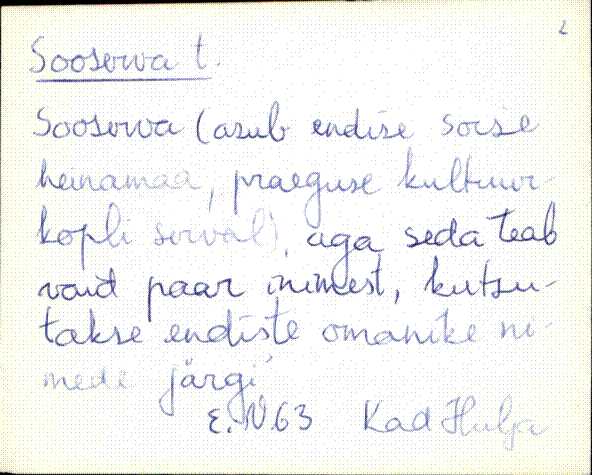 2
Sooserva t.
Sooserva (asub endise soise
heinamaa, praeguse kultuur-
kopli serval), aga seda teab
vaid paar inimest, kutsu-
takse endiste omanike ni-
mede järgi
E. V. 63 Kad Hulja